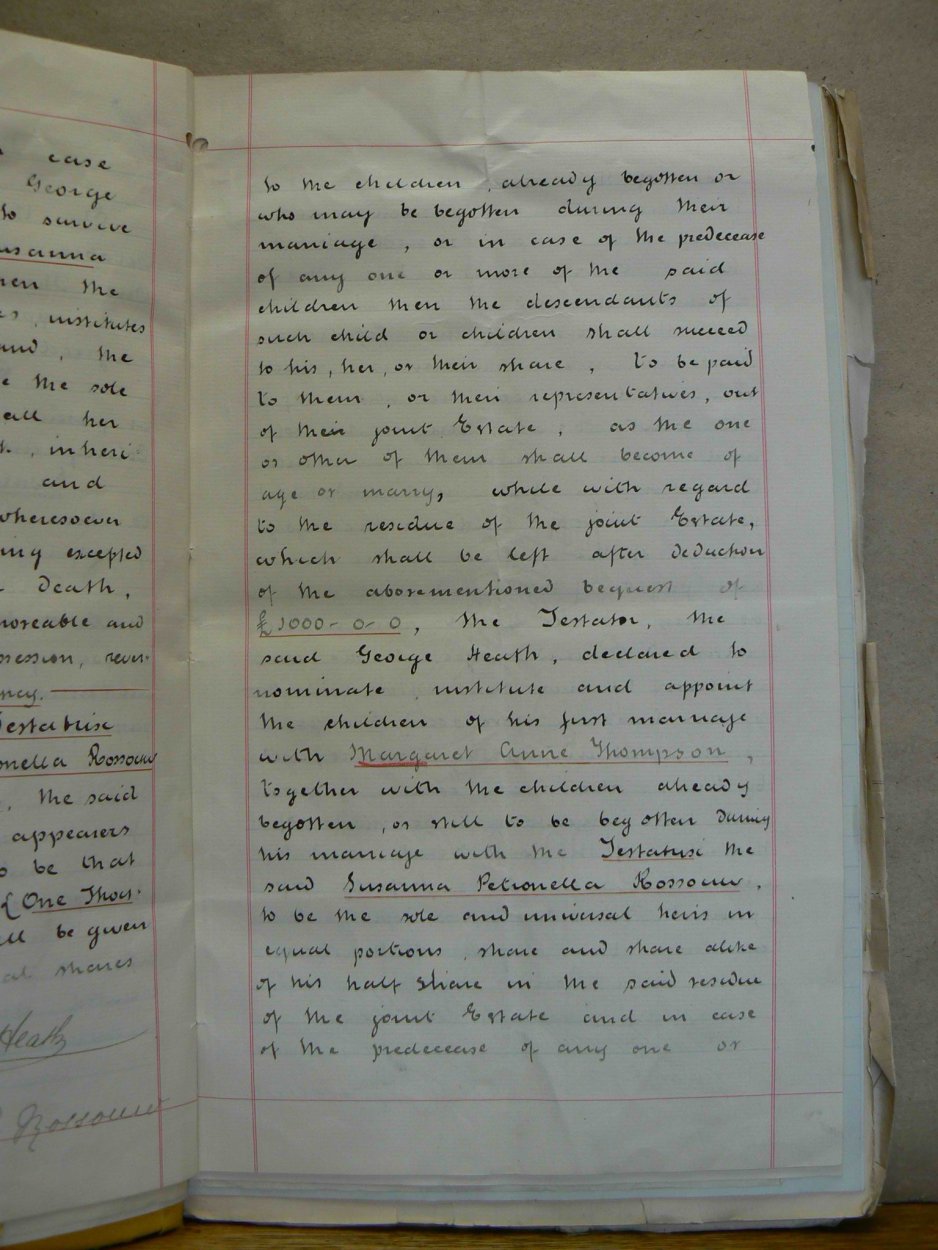 case
George
to survive
usanna
the
institutes
and , the
e the sole
all her
inheri-
and
wheresoever
ing excepted
Death,
moveable and
session, rever-
ncy.
Testatrix
onella Rossouw
, the said
appearers
o be that
£ One Thou-
ll be given
al shares
Heath
Rossouw
to the children , already begotten or
who may be begotten during their
marriage , or in case of the predecease
of any one or more of the said
children then the descendants of
such child or children shall succeed
to his , her , or their share , to be paid
to them , or their representatives , out
of their joint Estate , as the one
or other of them shall become of
age or marry, while with regard
to the residue of the joint Estate,
which shall be left after deduction
of the abovementioned bequest of
£1000-0-0, the Testator, the
said George Heath , declared to
nominate , institute and appoint
the children of his first marriage
with Margaret Anne Thompson ,
together with the children already
begotten , or still to be begotten during
his marriage with the Testatrix the
said Susanna Petronella Rossouw ,
to be the sole and universal heirs in
equal portions , share and share alike
of his half share in the said residue
of the joint Estate and in case
of the predecease of any one or